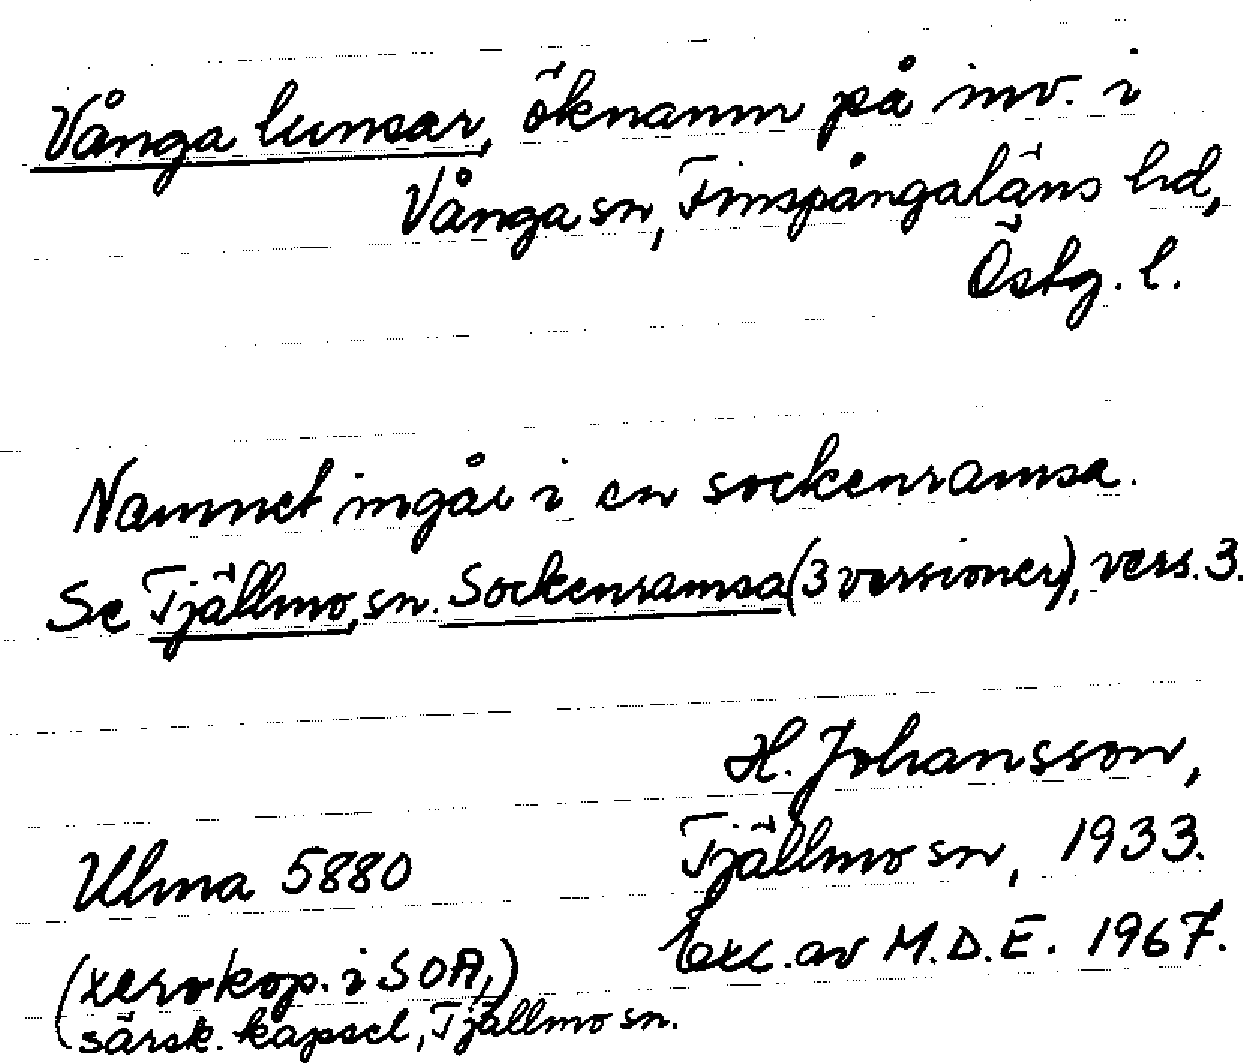 Vånga lunsar, öknamn på inv. i
Vånga sn, Finspångaläns hd,
Östg. l.
Namnet ingår i en sockenramsa.
Se Tjällmo, sn. Sockenramsa (3 versioner), vers. 3.
H. Johansson,
Tjällmo sn, 1933.
Ulma 5880
Exc. av M.D.E. 1967.
(xerokop. i SOA,)
särsk. kapsel, Tjällmo sn.